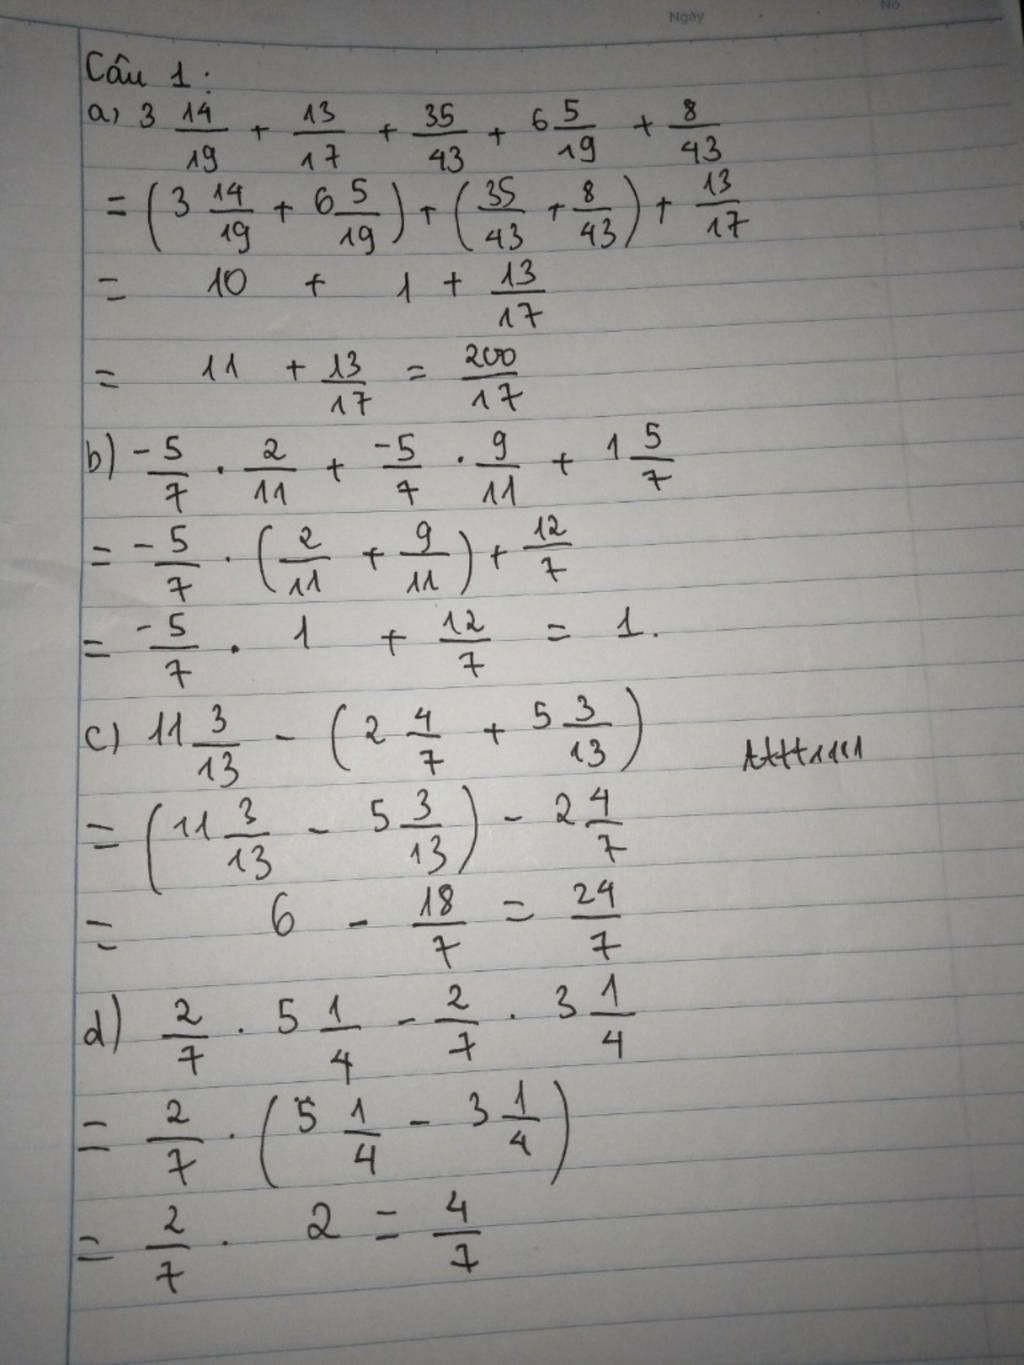 Ngày
No
Câu 1:
a) 3 14/19 + 13/17 + 35/43 + 6 5/19 + 8/43
= (3 14/19 + 6 5/19) + (35/43 + 8/43) + 13/17
= 10 + 1 + 13/17
= 11 + 13/17 = 200/17
b) -5/7 . 2/11 + -5/7 . 9/11 + 1 5/7
= -5/7 . (2/11 + 9/11) + 12/7
= -5/7 . 1 + 12/7 = 1.
c) 11 3/13 - (2 4/7 + 5 3/13)
= (11 3/13 - 5 3/13) - 2 4/7
= 6 - 18/7 = 24/7
d) 2/7 . 5 1/4 - 2/7 . 3 1/4
= 2/7 . (5 1/4 - 3 1/4)
= 2/7 . 2 = 4/7